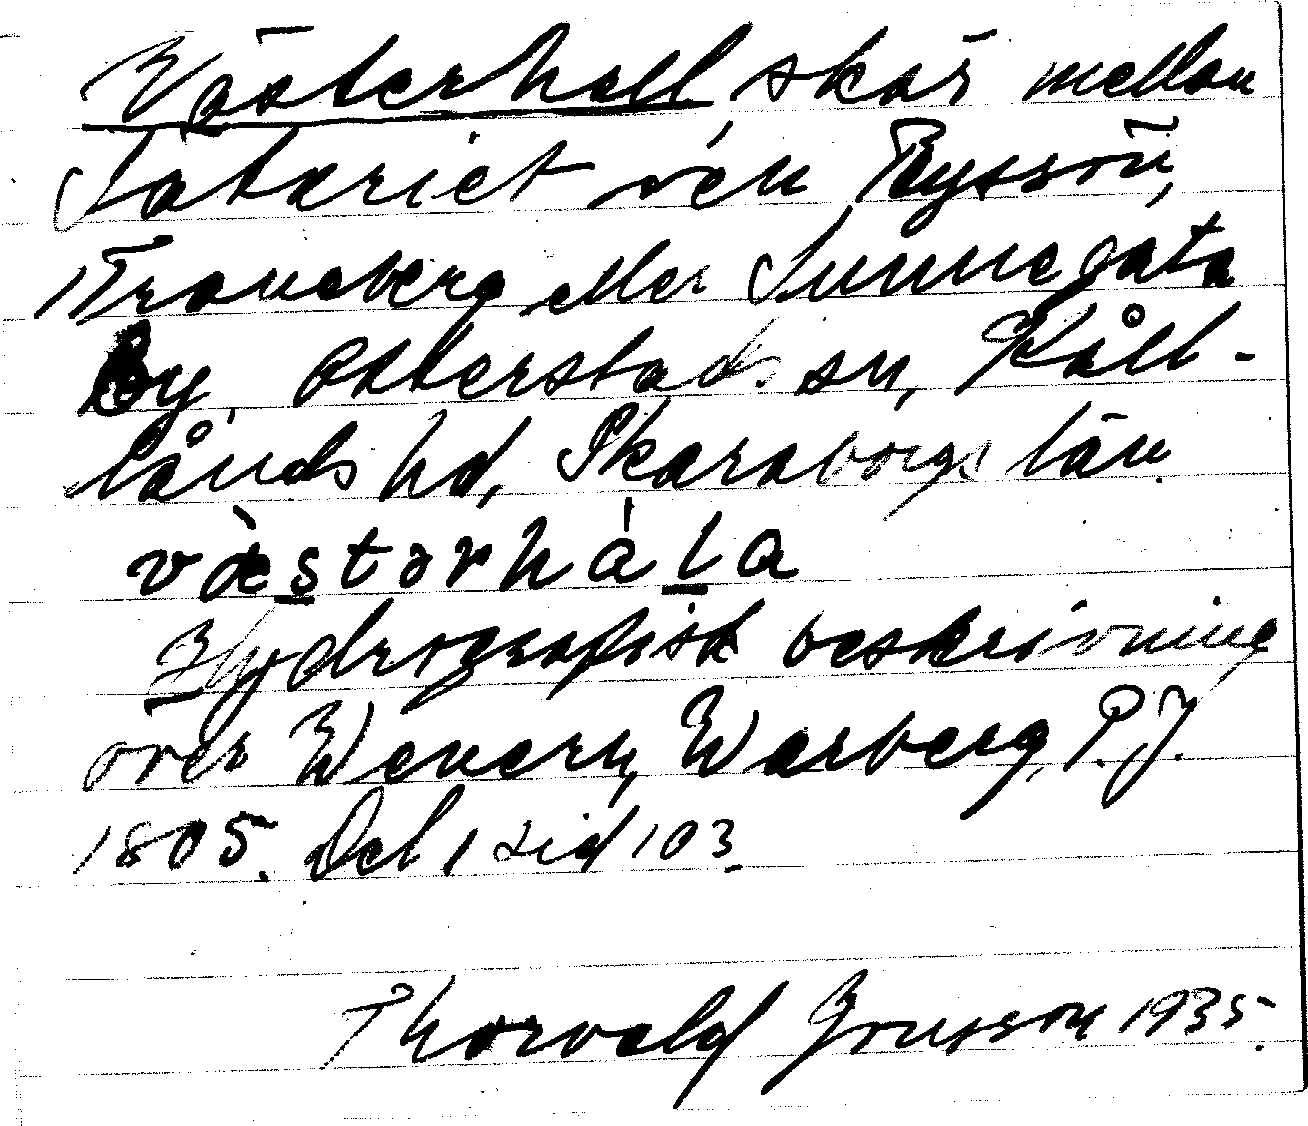 Västerhall skär mellan
Säteriet och Rysson,
Traneberg eller Sunnegåta
By, Otterstads sn, Kåll-
lands hd, Skaraborgs län.
væstərhàla
Hydrografisk beskrivning
över Wenern, Warberg, P.J.
1805. Del 1 sid 103.
Thorvald Grusson 1935.